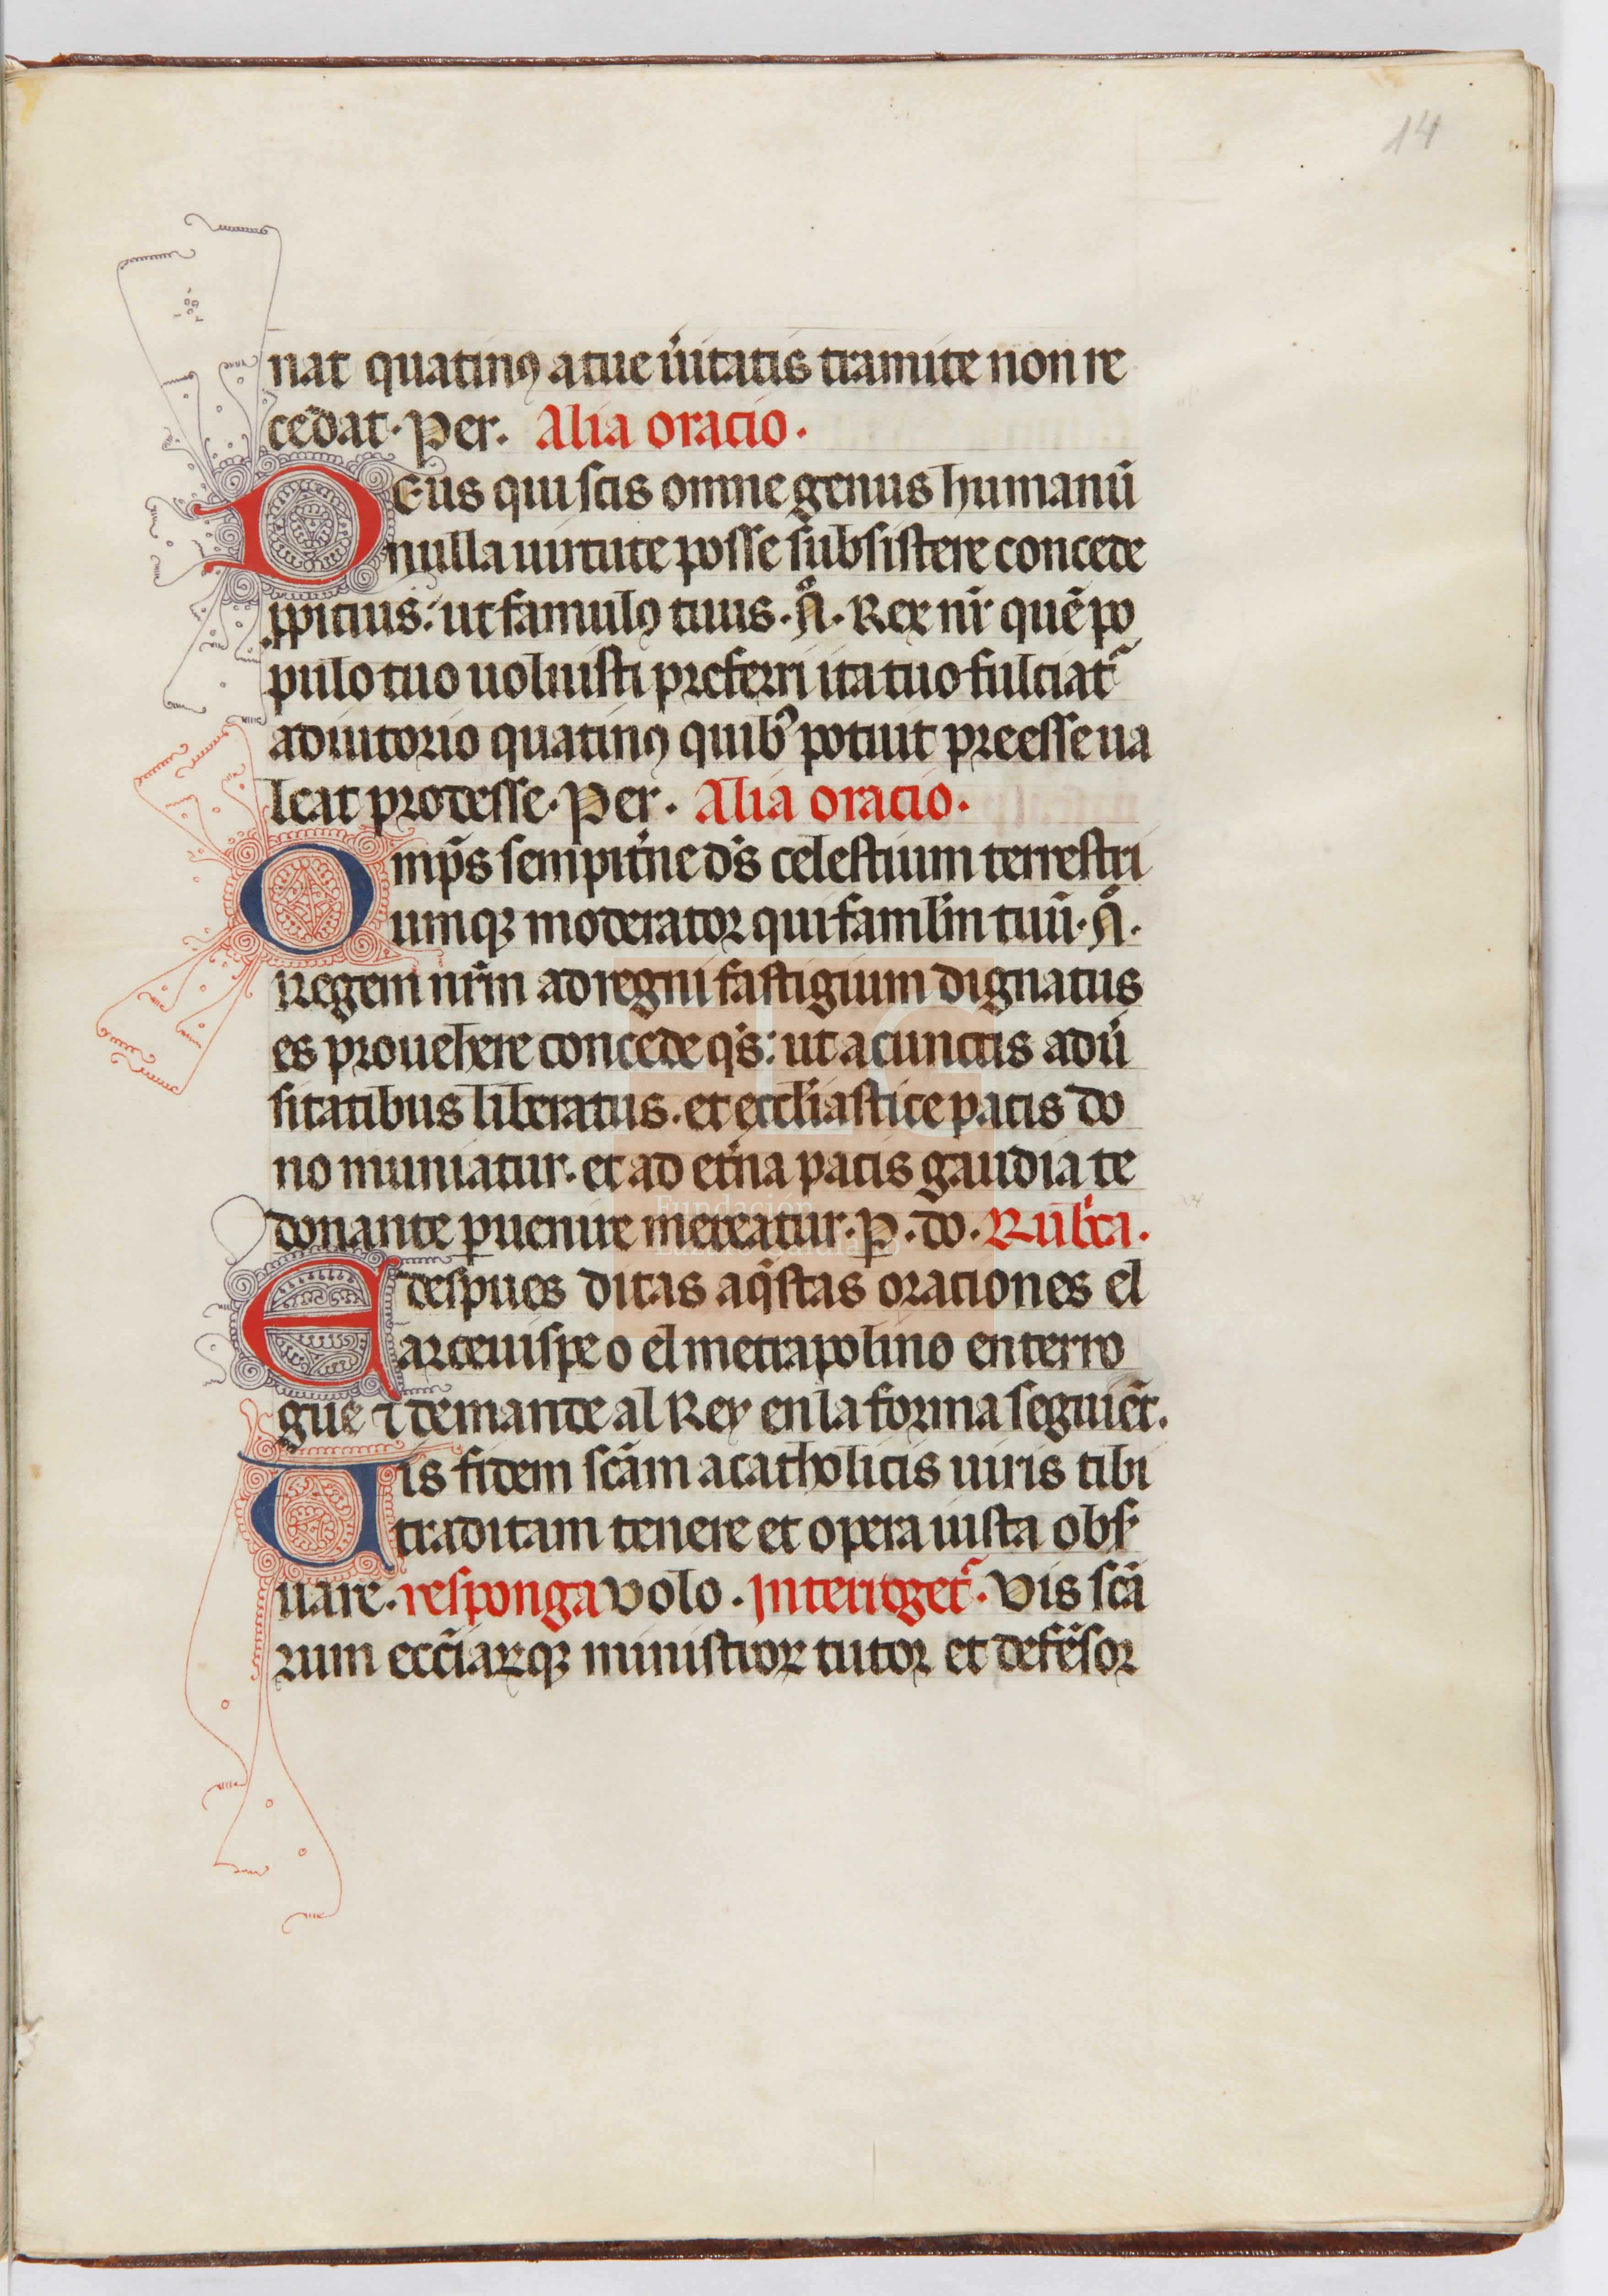 14
nat quatinꝯ a tue ũitatis tramite non re
cedat. Per. Alia oracio.
Deus qui scis omne genus humanũ
nulla uirtute posse subsistere concede
ꝓpicius: ut famulꝯ tuus. Ñ. Rex nr̃ quẽ po
pulo tuo uoluisti preferri ita tuo fulciat᷑
adiutorio quatinꝯ quibꝰ potuit preesse ua
leat prodesse. Per. Alia oracio.
Omp̃s sempit̃ne ds̃ celestium terrestri
umqꝫ moderator qui famlm̃ tuũ. Ñ.
Regem nr̃m ad regni fastigium dignatus
es prouehere concede qs̃: ut a cunctis adũ
sitatibus liberatus. et eccl̃iastice pacis do
no muniatur. et ad et̃na pacis gaudia te
donante ꝑuenire mereatur. P. do. Rub̃ca.
E despues ditas aq̃stas orationes el
arceuispe o el metrapolino enterro
gue ⁊ demande al Rey en la forma seguiẽt.
Uis fidem scãm a catholicis uiris tibi
traditam tenere et opera iusta obs̃
uare. responga volo. Interroget᷑. Vis scã
rum ecc̃iarꝫqꝫ ministror tutor et defẽsor
Fundación
Lázaro Galdiano